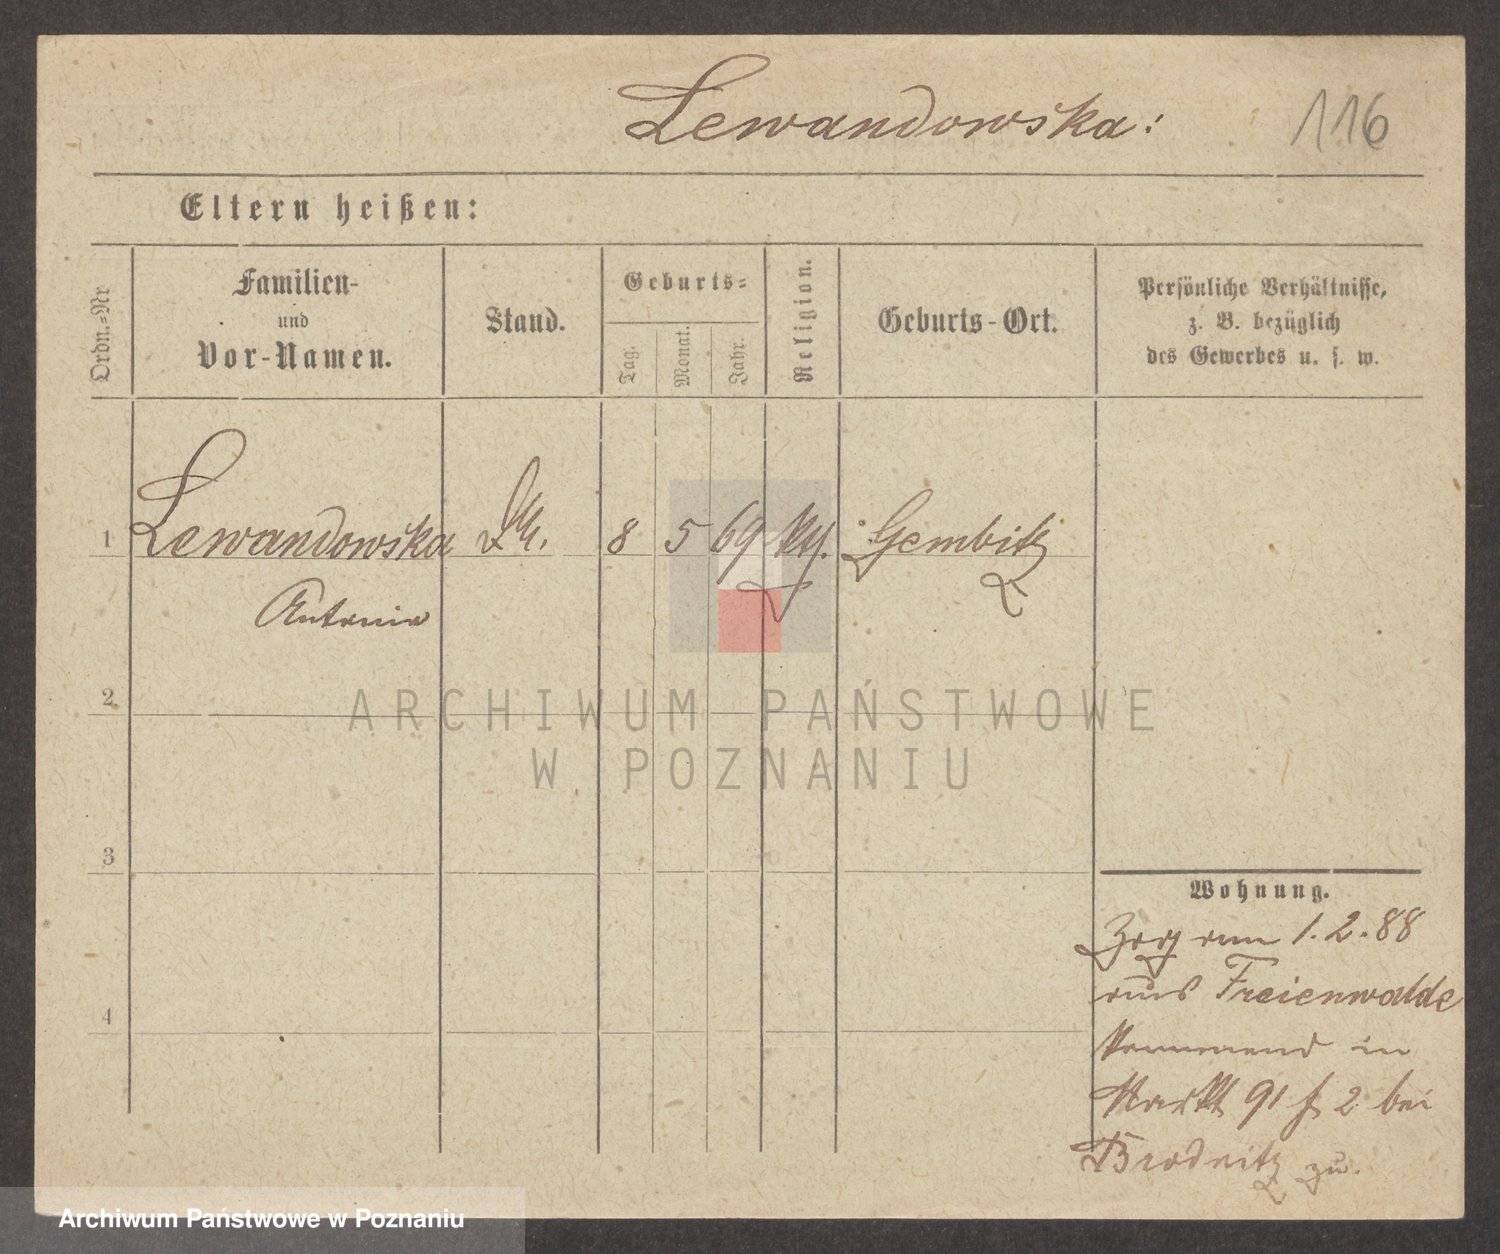 Lewandowska:
116
Eltern heißen:
Ordn.-Nr
Familien-
und
Vor-Namen.
Stand.
Geburts-
Tag.
Monat.
Jahr.
Religion.
Geburts-Ort.
Persönliche Verhältnisse,
z. B. bezüglich
des Gewerbes u. s. w.
1 Lewandowska 8 5 69 Gembitz
Antonie
2
3
4
Wohnung.
Zog am 1.2.88
aus Freienwalde
in
Markt 91 f 2 bei
Brodnitz zu.
ARCHIWUM PAŃSTWOWE
W POZNANIU
Archiwum Państwowe w Poznaniu